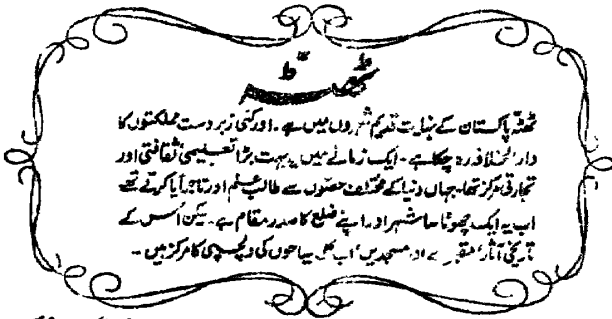 ٹھٹہ
ٹھٹہ پاکستان کے نہایت قدیم شہروں میں ہے۔ اور کئی زبردست مملکتوں کا
دارالخلافہ رہ چکا ہے۔ ایک زمانے میں یہ بہت بڑا تعلیمی، ثقافتی اور
تجارتی مرکز تھا، جہاں دنیا کے مختلف حصّوں سے طالب علم اور تاجر آیا کرتے تھے
اب یہ ایک چھوٹا سا شہر اور اپنے ضلع کا صدر مقام ہے۔ لیکن اُس کے
تاریخی آثار، مقبرے اور مسجدیں اب بھی سیاحوں کی دلچسپی کا مرکز ہیں۔